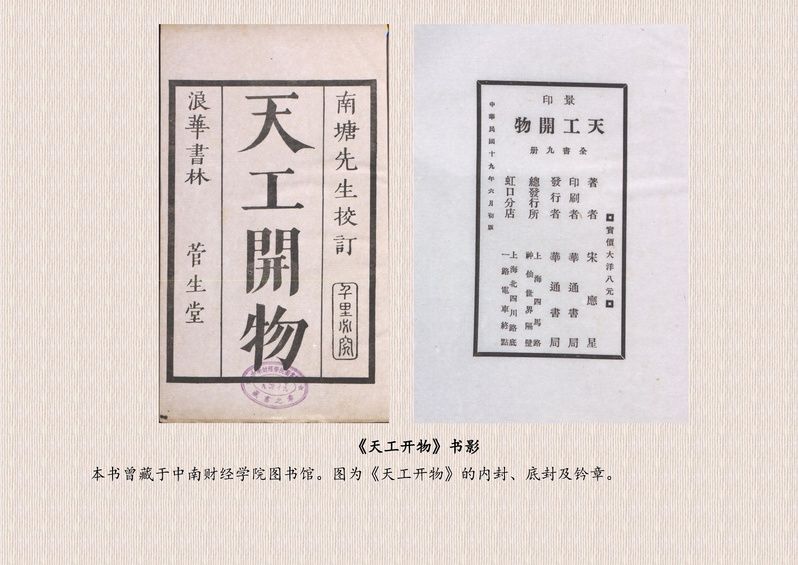 南塘先生校訂
千里必究
天工開物
浪華書林 菅生堂
景印
天工開物
全書九册
實價大洋八元
著者 宋應星
印刷者 華通書局
發行者 華通書局
總發行所 上海四馬路神仙世界隔壁
虹口分店 上海北四川路底一路電車終點
中華民國十九年六月初版
《天工开物》书影
本书曾藏于中南财经学院图书馆。图为《天工开物》的内封、底封及钤章。